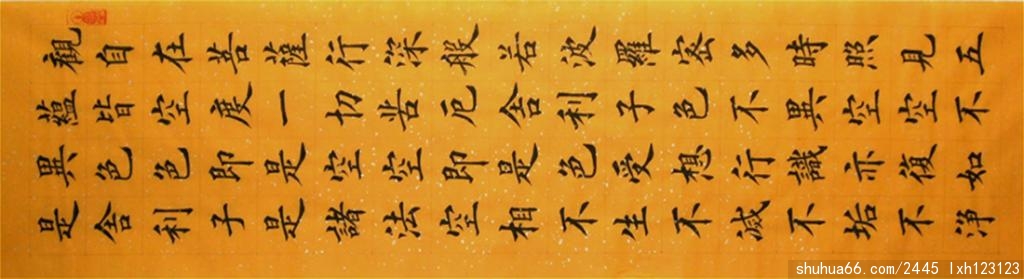 觀自在菩薩行深般若波羅密多時照見五
蘊皆空度一切苦厄舍利子色不異空空不
異色色即是空空即是色受想行識亦復如
是舍利子是諸法空相不生不滅不垢不淨
shuhua66.com/2445 lxh123123